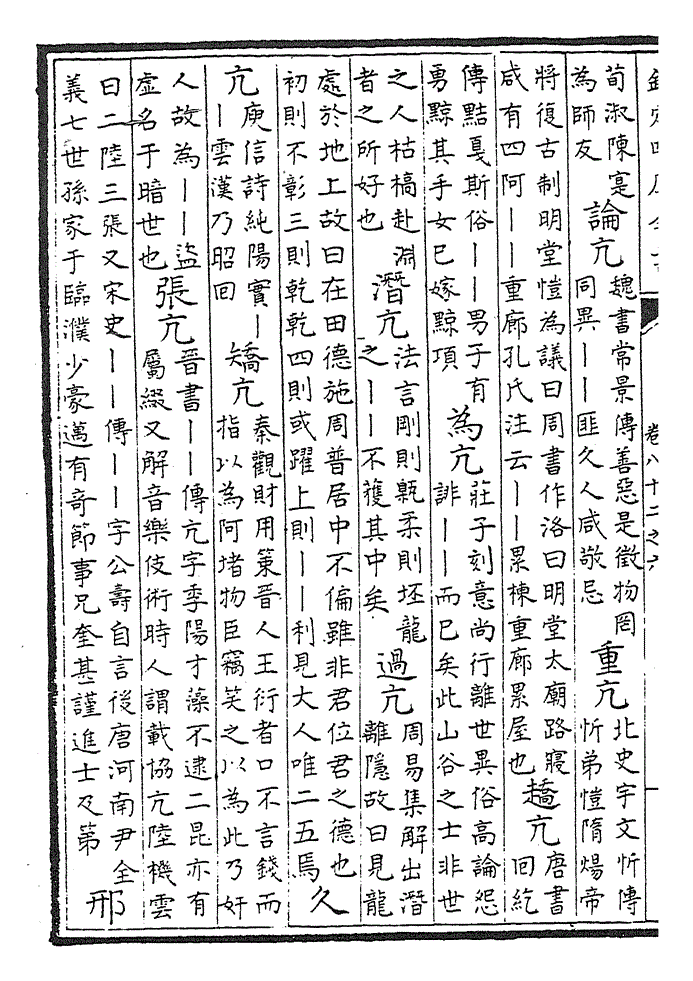 欽定四庫全書
卷八十二之六
荀淑陳寔
為師友
論亢
魏書常景傳善惡是徵物罔
同異丨丨匪久人咸敬忌
重亢
北史宇文忻傳
忻弟愷隋煬帝
將復古制明堂愷為議曰周書作洛曰明堂太廟路寢
咸有四阿丨丨重廊孔氏注云丨丨累棟重廊累屋也
趫亢
唐書
回紇
傳黠戛斯俗丨丨男子有
勇黥其手女已嫁黥項
為亢
莊子刻意尚行離世異俗高論怨
誹丨丨而已矣此山谷之士非世
之人枯槁赴淵
者之所好也
潛亢
法言剛則甈柔則坯龍
之丨丨不獲其中矣
過亢
周易集解出潛
離隱故曰見龍
處於地上故曰在田德施周普居中不偏雖非君位君之德也
初則不彰三則乾乾四則或躍上則丨丨利見大人唯二五焉
久
亢
庾信詩純陽實丨
丨雲漢乃昭回
矯亢
秦觀財用策晉人王衍者口不言錢而
指以為阿堵物臣竊笑之以為此乃奸
人故為丨丨盜
虛名于暗世也
張亢
晉書丨丨傳亢字季陽才藻不逮二昆亦有
屬綴又解音樂伎術時人謂載協亢陸機雲
曰二陸三張又宋史丨丨傳丨丨字公壽自言後唐河南尹全
義七世孫家于臨濮少豪邁有奇節事兄奎甚謹進士及第
邢